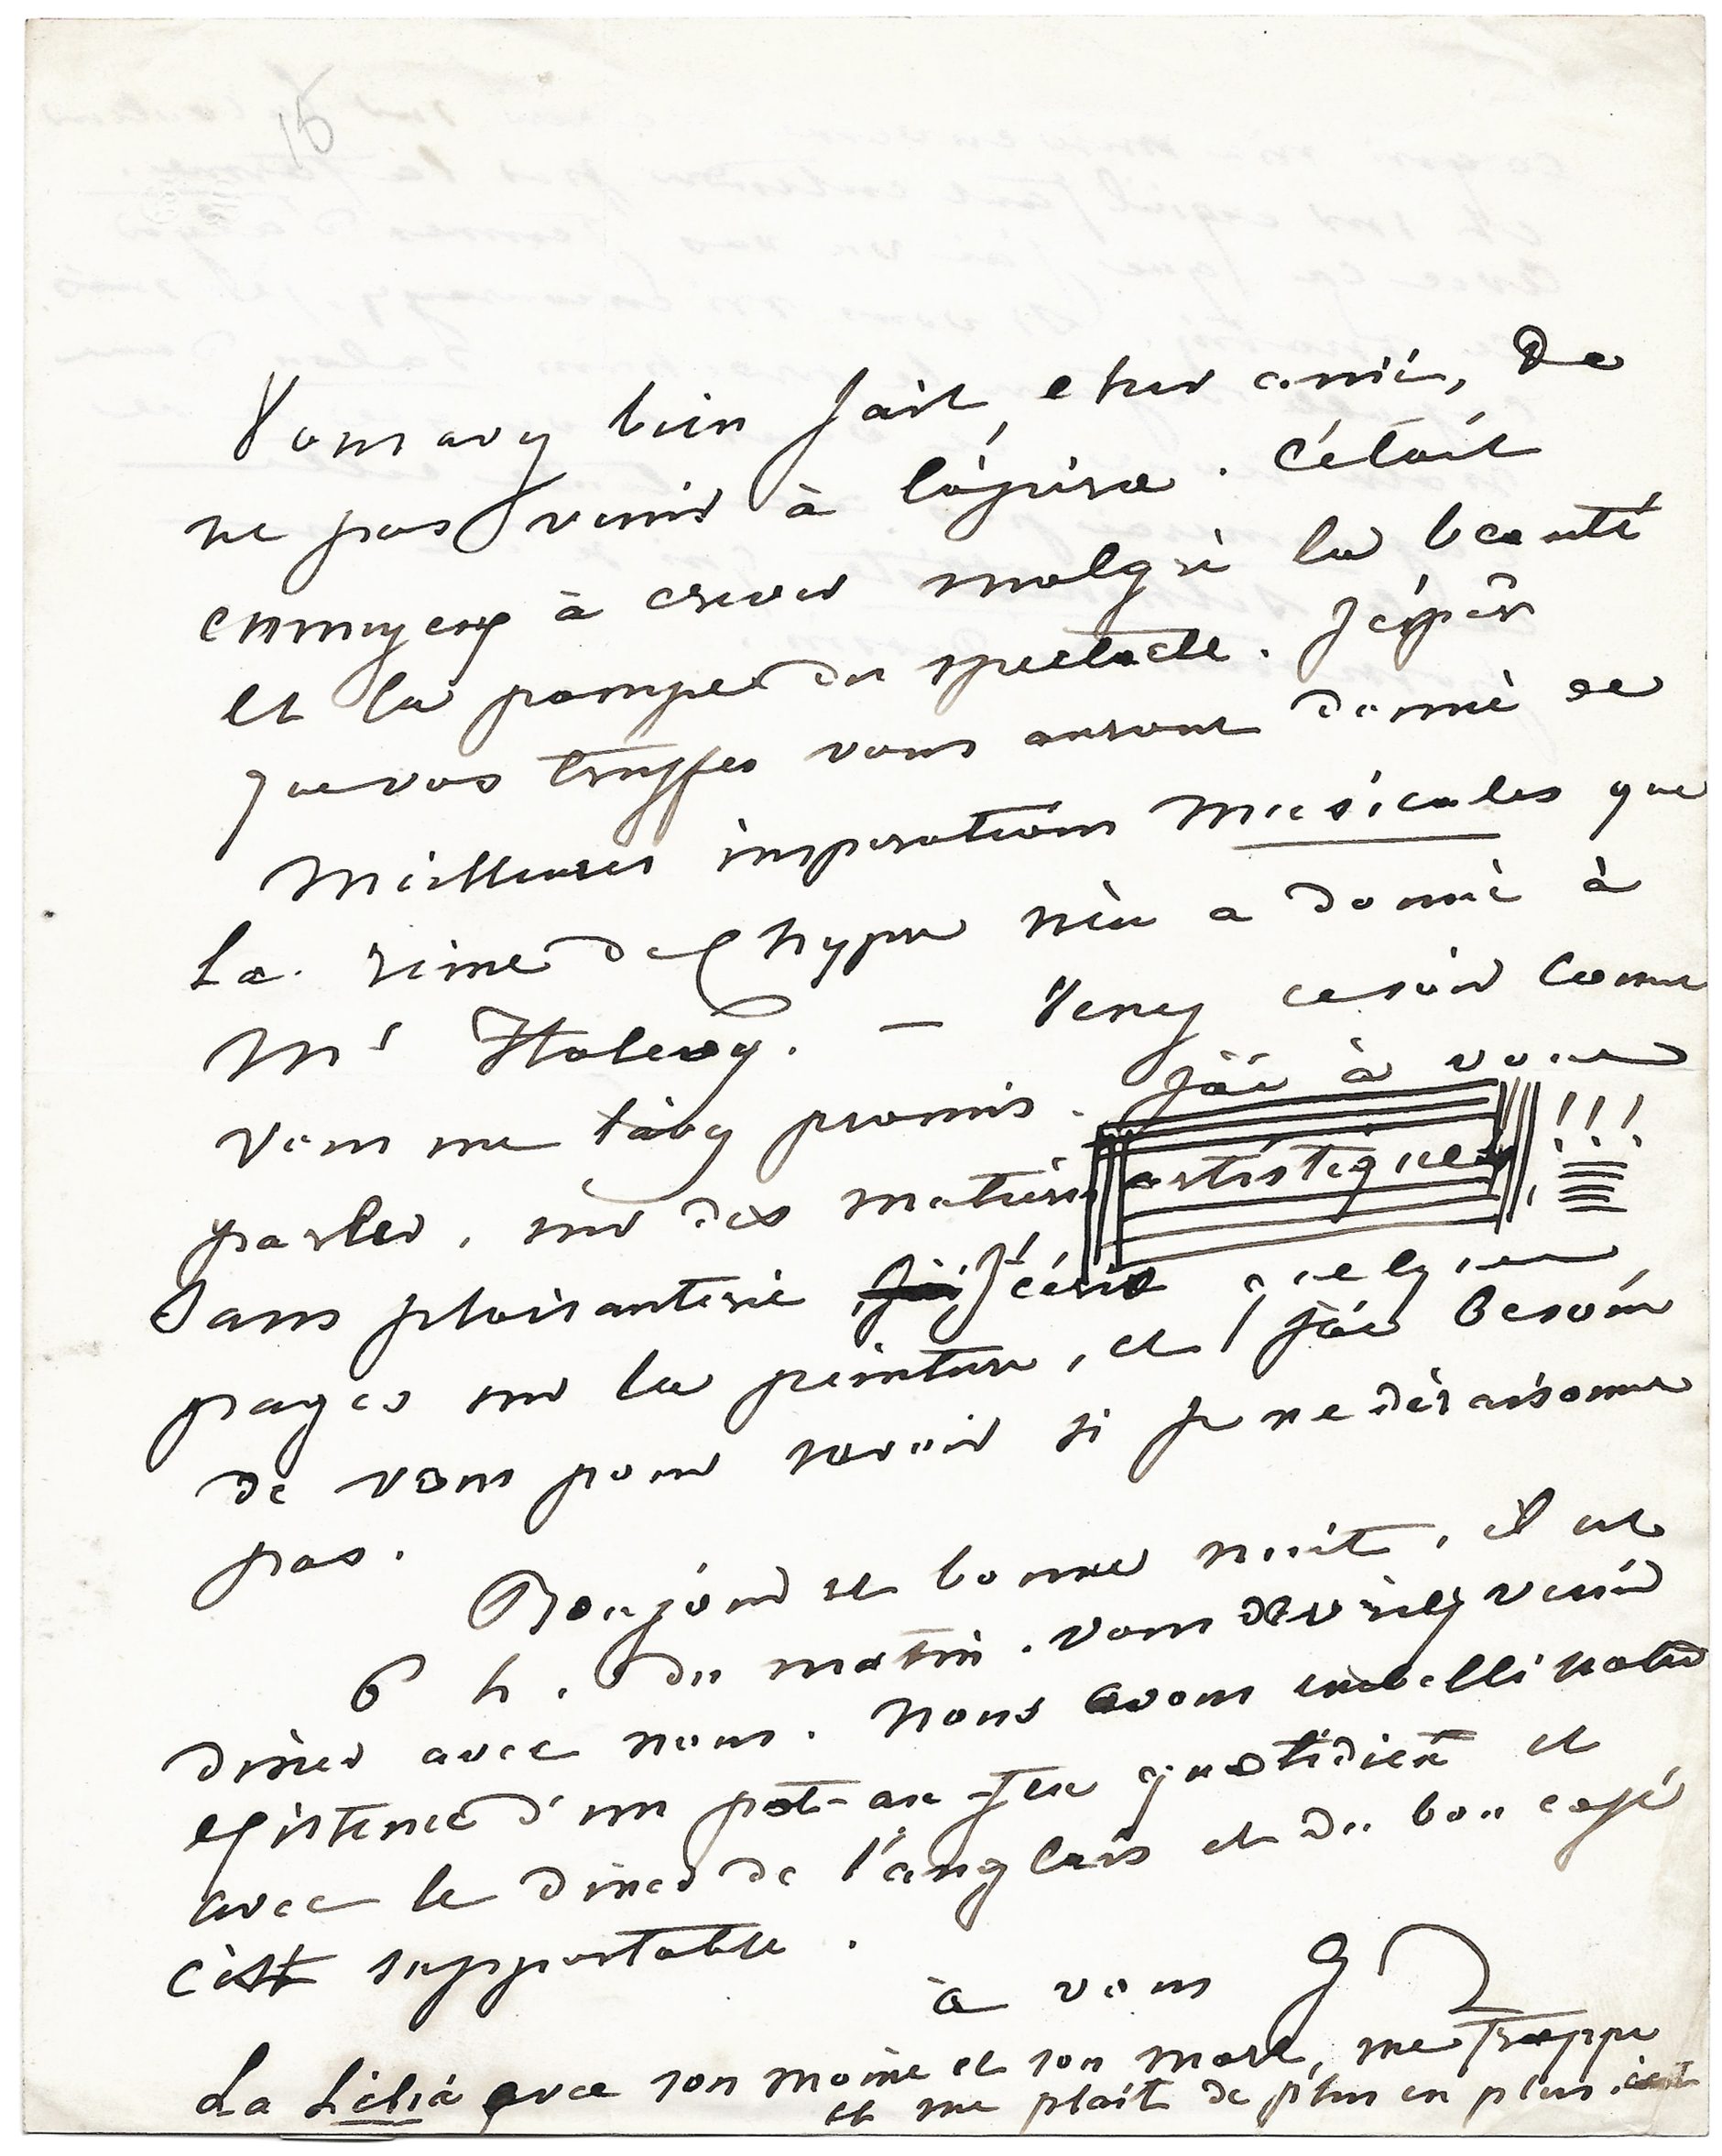 15
Vous avez bien fait, cher ami, de
ne pas venir à l'opéra. C'était
ennuyeux à crever malgré la beauté
et la pompe du spectacle. J'espère
que vos truffes vous auront donné de
meilleures inspirations musicales que
la reine de Chypre n'en a donné à
Mr Halevy. — Venez ce soir comme
vous me l'avez promis. J'ai à vous
parler, sur des matières artistiques !!!
Sans plaisanterie j'ai J'écris quelques
pages sur la peinture, et j'ai besoin
de vous pour savoir si je ne déraisonne
pas.
Bonjour et bonne nuit, il est
6 h. du matin. Vous devriez venir
diner avec nous. Nous avons embelli notre
existence d'un pot-au-feu quotidien et
avec le diner de l'anglais et du bon café
c'est supportable.
à vous G
La Lélia avec son moine et son mort, me frappe
et me plait de plus en plus.